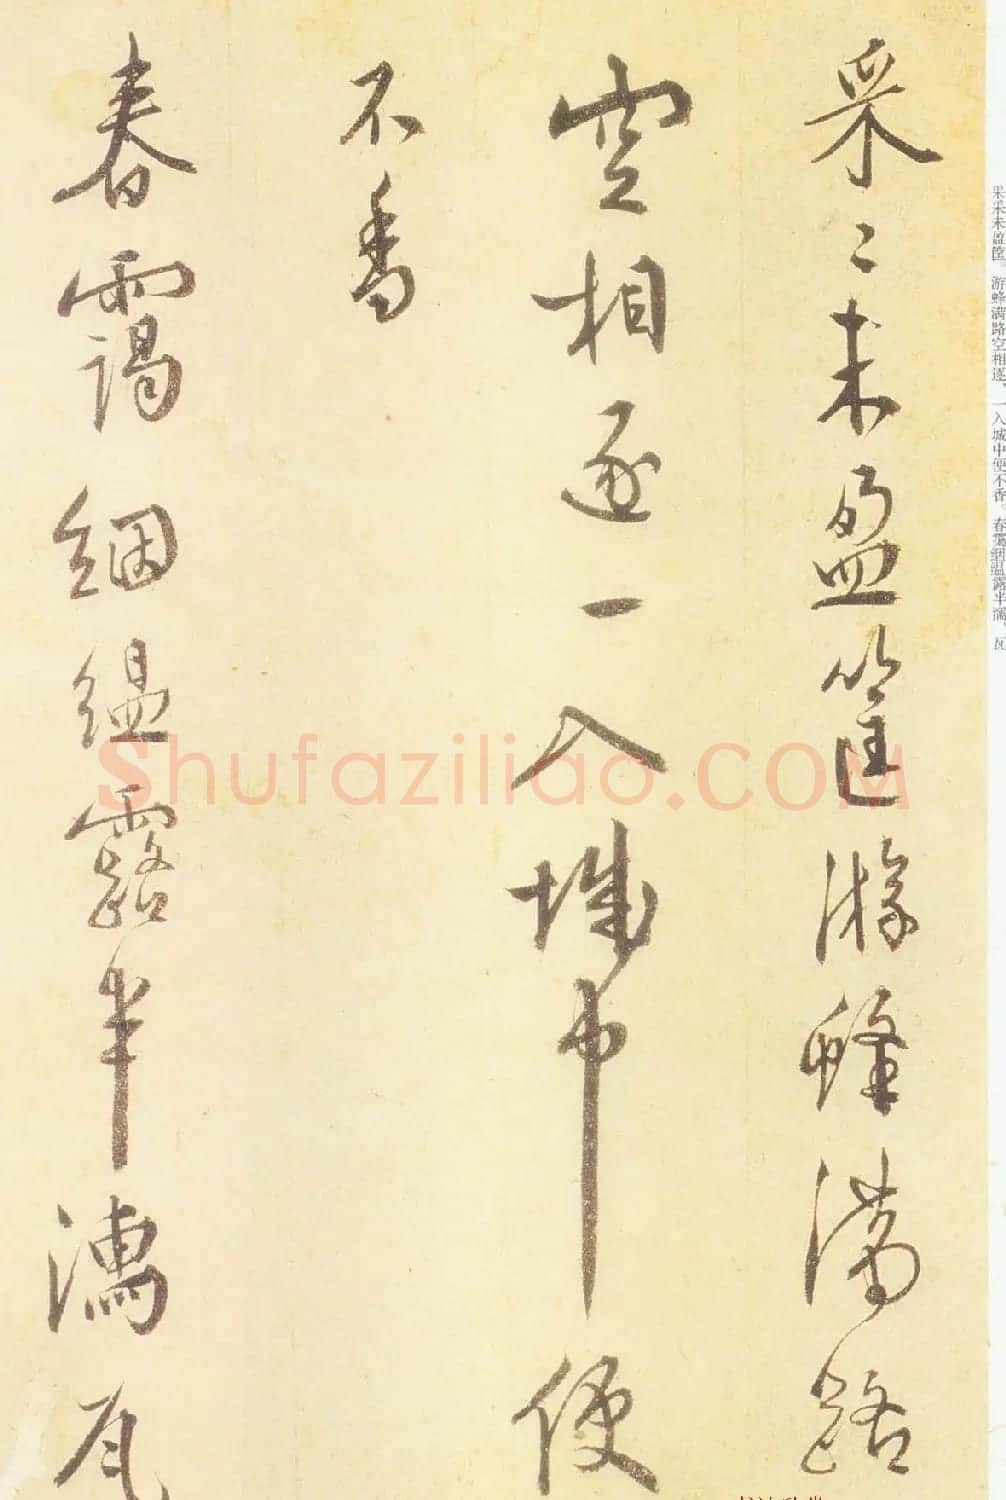 采〻未盈筐游蜂满路
空相逐一入城中便
不香
春靄絪縕露半濡瓦
采采未盈筐。游蜂满路空相逐,一入城中便不香。春霭絪缊露半濡,瓦
Shufaziliao.COM